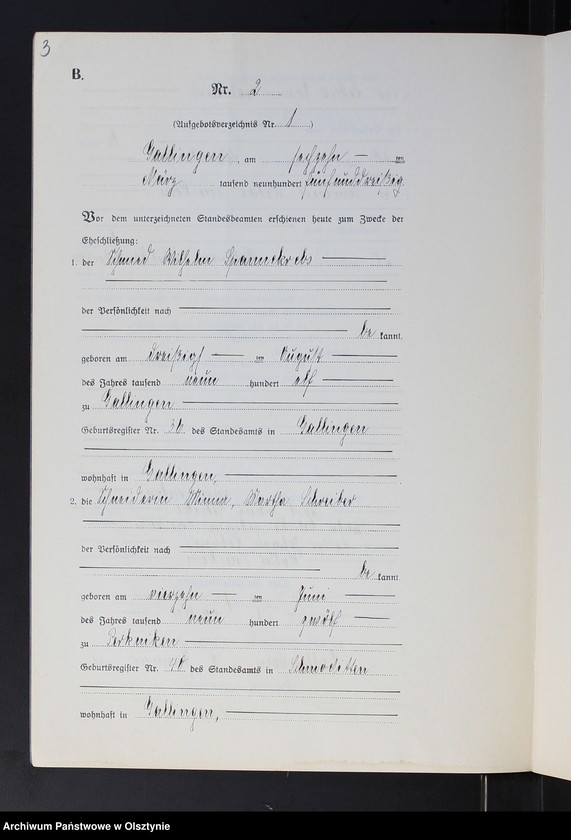 3
B.
Nr. 2
(Aufgebotsverzeichnis Nr. 1)
Gallingen, am sechzehn ten
März tausend neunhundert fünfunddreißig.
Vor dem unterzeichneten Standesbeamten erschienen heute zum Zwecke der
Eheschließung:
1. der Schmied Wilhelm Spannekrebs
der Persönlichkeit nach
be kannt,
geboren am dreißigst ten August
des Jahres tausend neun hundert elf
zu Gallingen
Geburtsregister Nr. 36 des Standesamts in Gallingen
wohnhaft in Gallingen,
2. die Schneiderin Minna, Martha Schreiber
der Persönlichkeit nach
be kannt,
geboren am vierzehn ten Juni
des Jahres tausend neun hundert zwölf
zu Perkuiken
Geburtsregister Nr. des Standesamts in Schmoditten
wohnhaft in Gallingen,
Archiwum Państwowe w Olsztynie